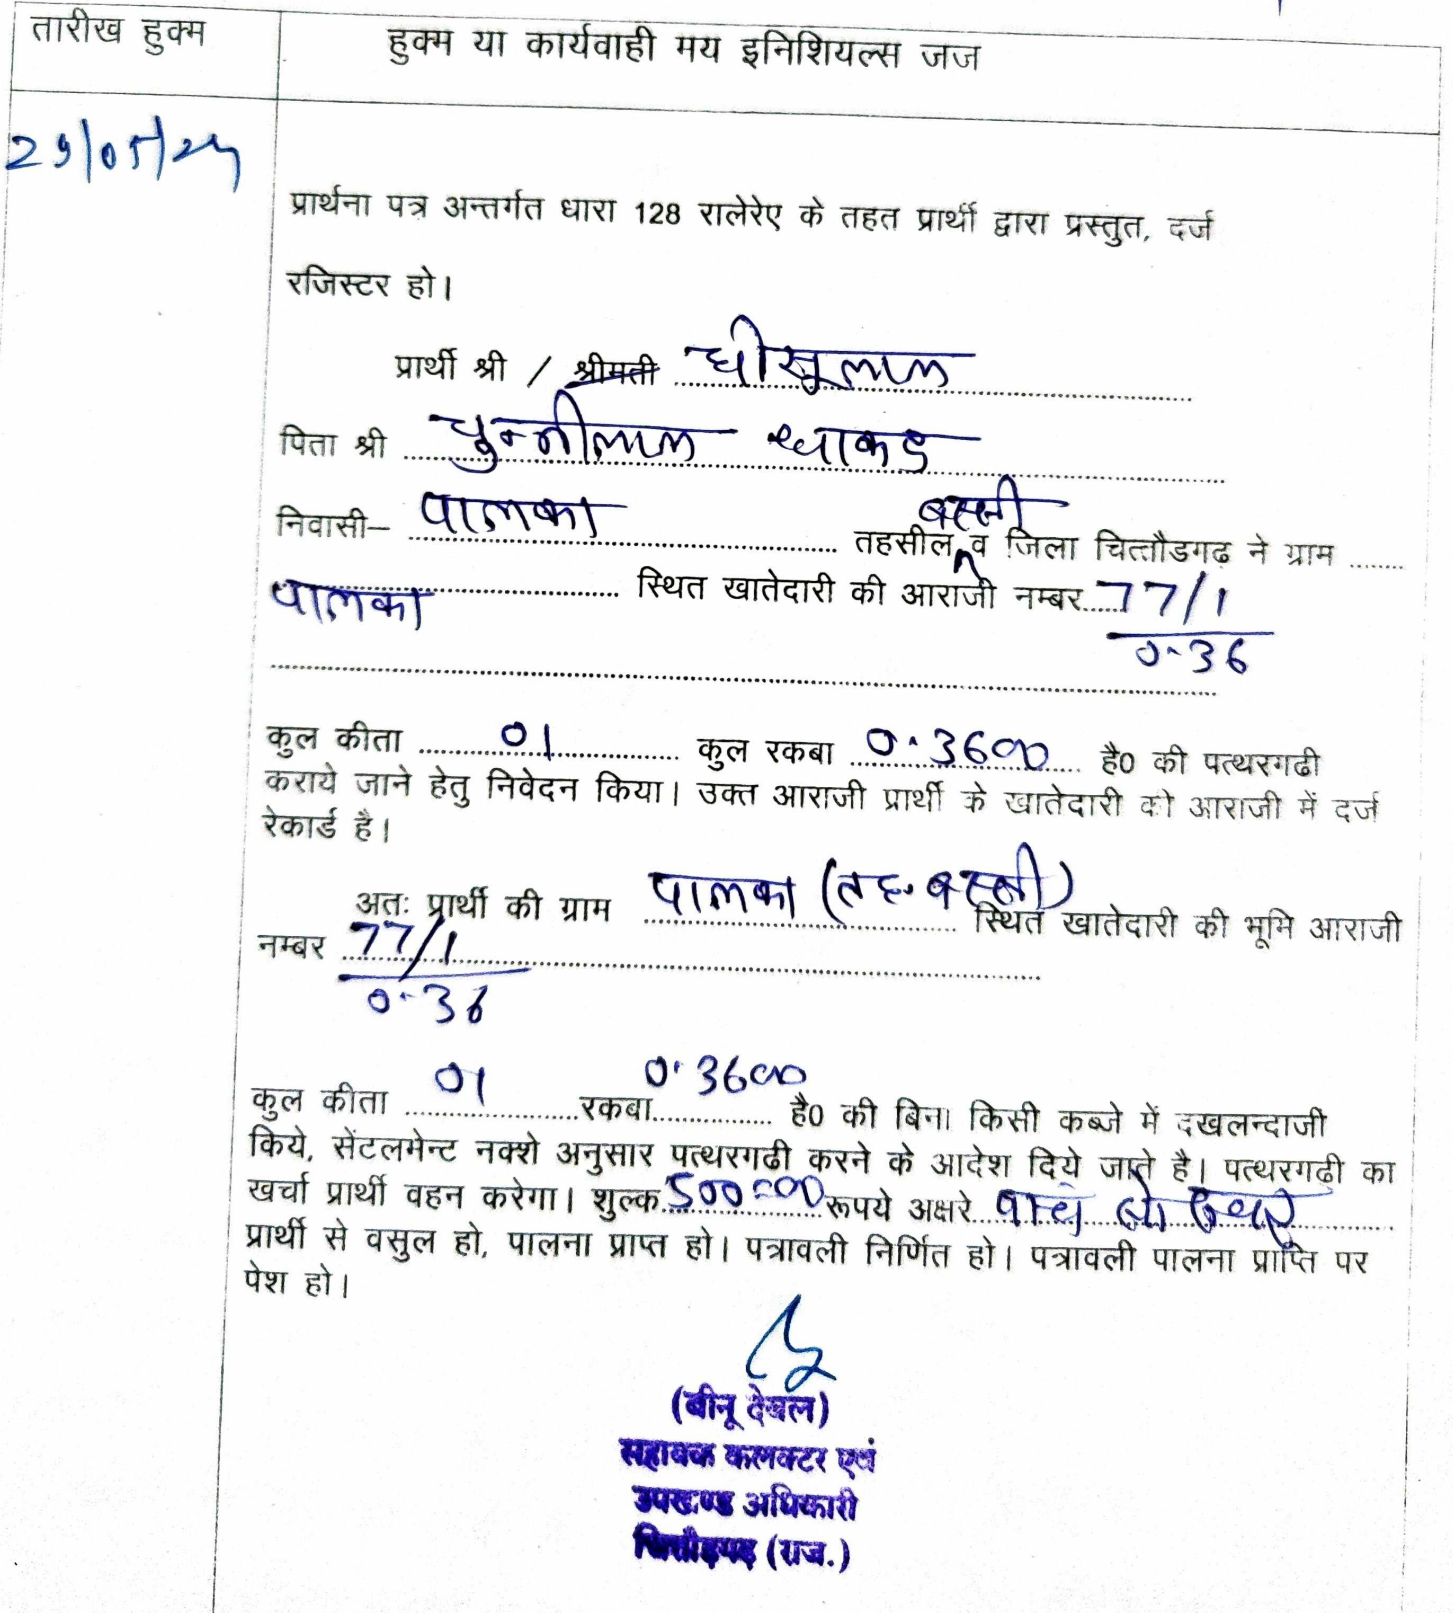 तारीख हुक्म
हुक्म या कार्यवाही मय इनिशियल्स जज
29/05/24
प्रार्थना पत्र अन्तर्गत धारा 128 रालेरेए के तहत प्रार्थी द्वारा प्रस्तुत, दर्ज
रजिस्टर हो।
प्रार्थी श्री / श्रीमती घीसूलाल
पिता श्री चुन्नीलाल धाकड
निवासी– पालका तहसील बस्सी व जिला चित्तौडगढ़ ने ग्राम
पालका स्थित खातेदारी की आराजी नम्बर 77/1
0-36
कुल कीता 01 कुल रकबा 0.3600 है0 की पत्थरगढी
कराये जाने हेतु निवेदन किया। उक्त आराजी प्रार्थी के खातेदारी की आराजी में दर्ज
रेकार्ड है।
अतः प्रार्थी की ग्राम पालका (तह. बस्सी) स्थित खातेदारी की भूमि आराजी
नम्बर 77/1
0-36
कुल कीता 01 रकबा 0.3600 है0 की बिना किसी कब्जे में दखलन्दाजी
किये, सेंटलमेन्ट नक्शे अनुसार पत्थरगढी करने के आदेश दिये जाते है। पत्थरगढी का
खर्चा प्रार्थी वहन करेगा। शुल्क 500=00 रूपये अक्षरे पाच सो
प्रार्थी से वसुल हो, पालना प्राप्त हो। पत्रावली निर्णित हो। पत्रावली पालना प्राप्ति पर
पेश हो।
(बीनू देवल)
सहायक कलक्टर एवं
उपखण्ड अधिकारी
चित्तौड़गढ़ (राज.)